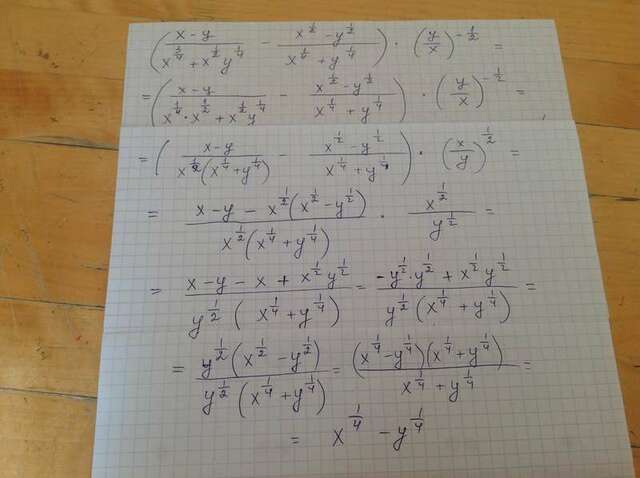 (x-y/(x^(3/4) + x^(1/2)y^(1/4)) - (x^(1/2) - y^(1/2))/(x^(1/4) + y^(1/4))) · (y/x)^(-1/2) =
= ((x-y)/(x^(1/4)·x^(1/2) + x^(1/2)y^(1/4)) - (x^(1/2) - y^(1/2))/(x^(1/4) + y^(1/4))) · (y/x)^(-1/2) =
= ((x-y)/(x^(1/2)(x^(1/4) + y^(1/4))) - (x^(1/2) - y^(1/2))/(x^(1/4) + y^(1/4))) · (x/y)^(1/2) =
= (x - y - x^(1/2)(x^(1/2) - y^(1/2)))/(x^(1/2)(x^(1/4) + y^(1/4))) · x^(1/2)/y^(1/2) =
= (x - y - x + x^(1/2)y^(1/2))/(y^(1/2)(x^(1/4) + y^(1/4))) = (-y^(1/2)·y^(1/2) + x^(1/2)y^(1/2))/(y^(1/2)(x^(1/4) + y^(1/4))) =
= (y^(1/2)(x^(1/2) - y^(1/2)))/(y^(1/2)(x^(1/4) + y^(1/4))) = ((x^(1/4) - y^(1/4))(x^(1/4) + y^(1/4)))/(x^(1/4) + y^(1/4)) =
= x^(1/4) - y^(1/4)